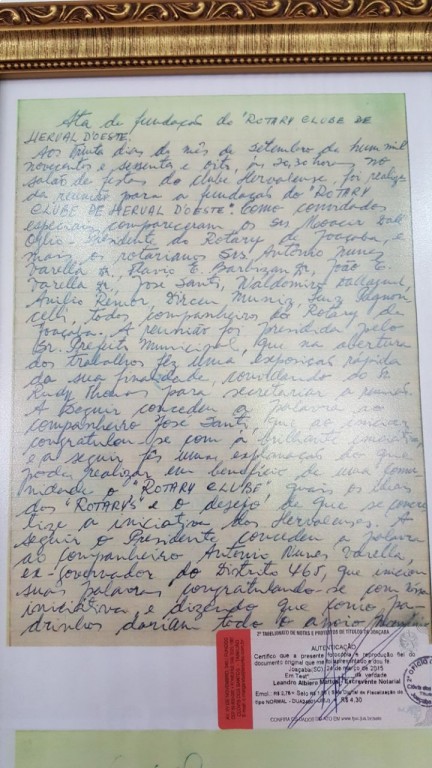 Ata de fundação do "ROTARY CLUBE DE
HERVAL D'OESTE.
Aos trinta dias do mês de setembro de hum mil
novecentos e sessenta e oito, às 20,30 horas, no
salão de festas do Clube Hervalense, foi realiza
da reunião para a fundação do "ROTARY
CLUBE DE HERVAL D'OESTE". Como convidados
especiais compareceram os srs Moacir Dall
Oglio, Presidente do Rotary de Joaçaba, e
mais os rotarianos Srs. Antonio Nunes
Varella Jr., Flavio E. João E.
Varella Jr., José Santi, Waldomiro
Aurilio Remor, Dirceu Muniz, Luiz Pagnon
celli, todos companheiros do Rotary de
Joaçaba. A reunião foi presidida pelo
Sr. Prefeito Municipal, que na abertura
dos trabalhos fez uma exposição rápida
da sua finalidade, convidando o Sr.
Rudy para secretariar a reunião.
A seguir concedeu a palavra ao
companheiro José Santi, que ao iniciar
congratulou-se com a brilhante iniciativa
e a seguir fez uma explanação do que
pode realizar em benefício de uma comu
nidade o "ROTARY CLUBE" quais os ideais
dos "ROTARY'S" e o desejo de que se concre
tize a iniciativa dos Hervalenses. A
seguir o Presidente concedeu a palavra
ao companheiro Antonio Nunes Varella
ex-governador do Distrito 465, que iniciou
suas palavras congratulando-se com essa
iniciativa e dizendo que como pa
drinhos dariam todo o apoio
2º TABELIONATO DE NOTAS E PROTESTOS DE TÍTULOS DE JOAÇABA
AUTENTICAÇÃO
Certifico que a presente fotocópia é reprodução fiel do
documento original que me foi apresentado e dou fé.
Joaçaba(SC), 24 de março de 2015
Em Testº da verdade
Leandro Albiero Escrevente Notarial
Emol.: R$ 2,75 + Selo R$ 1,55
tipo NORMAL - R$ 4,30